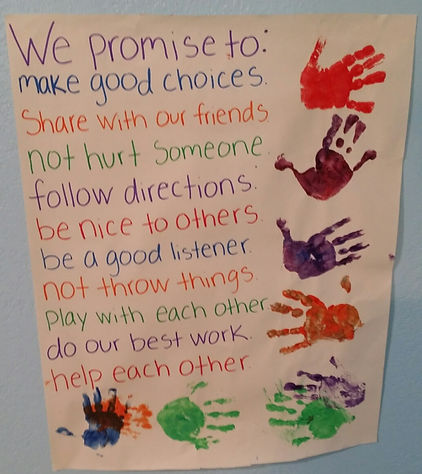 We promise to:
make good choices.
Share with our friends.
not hurt someone.
follow directions.
be nice to others.
be a good listener.
not throw things.
Play with each other.
do our best work.
help each other.